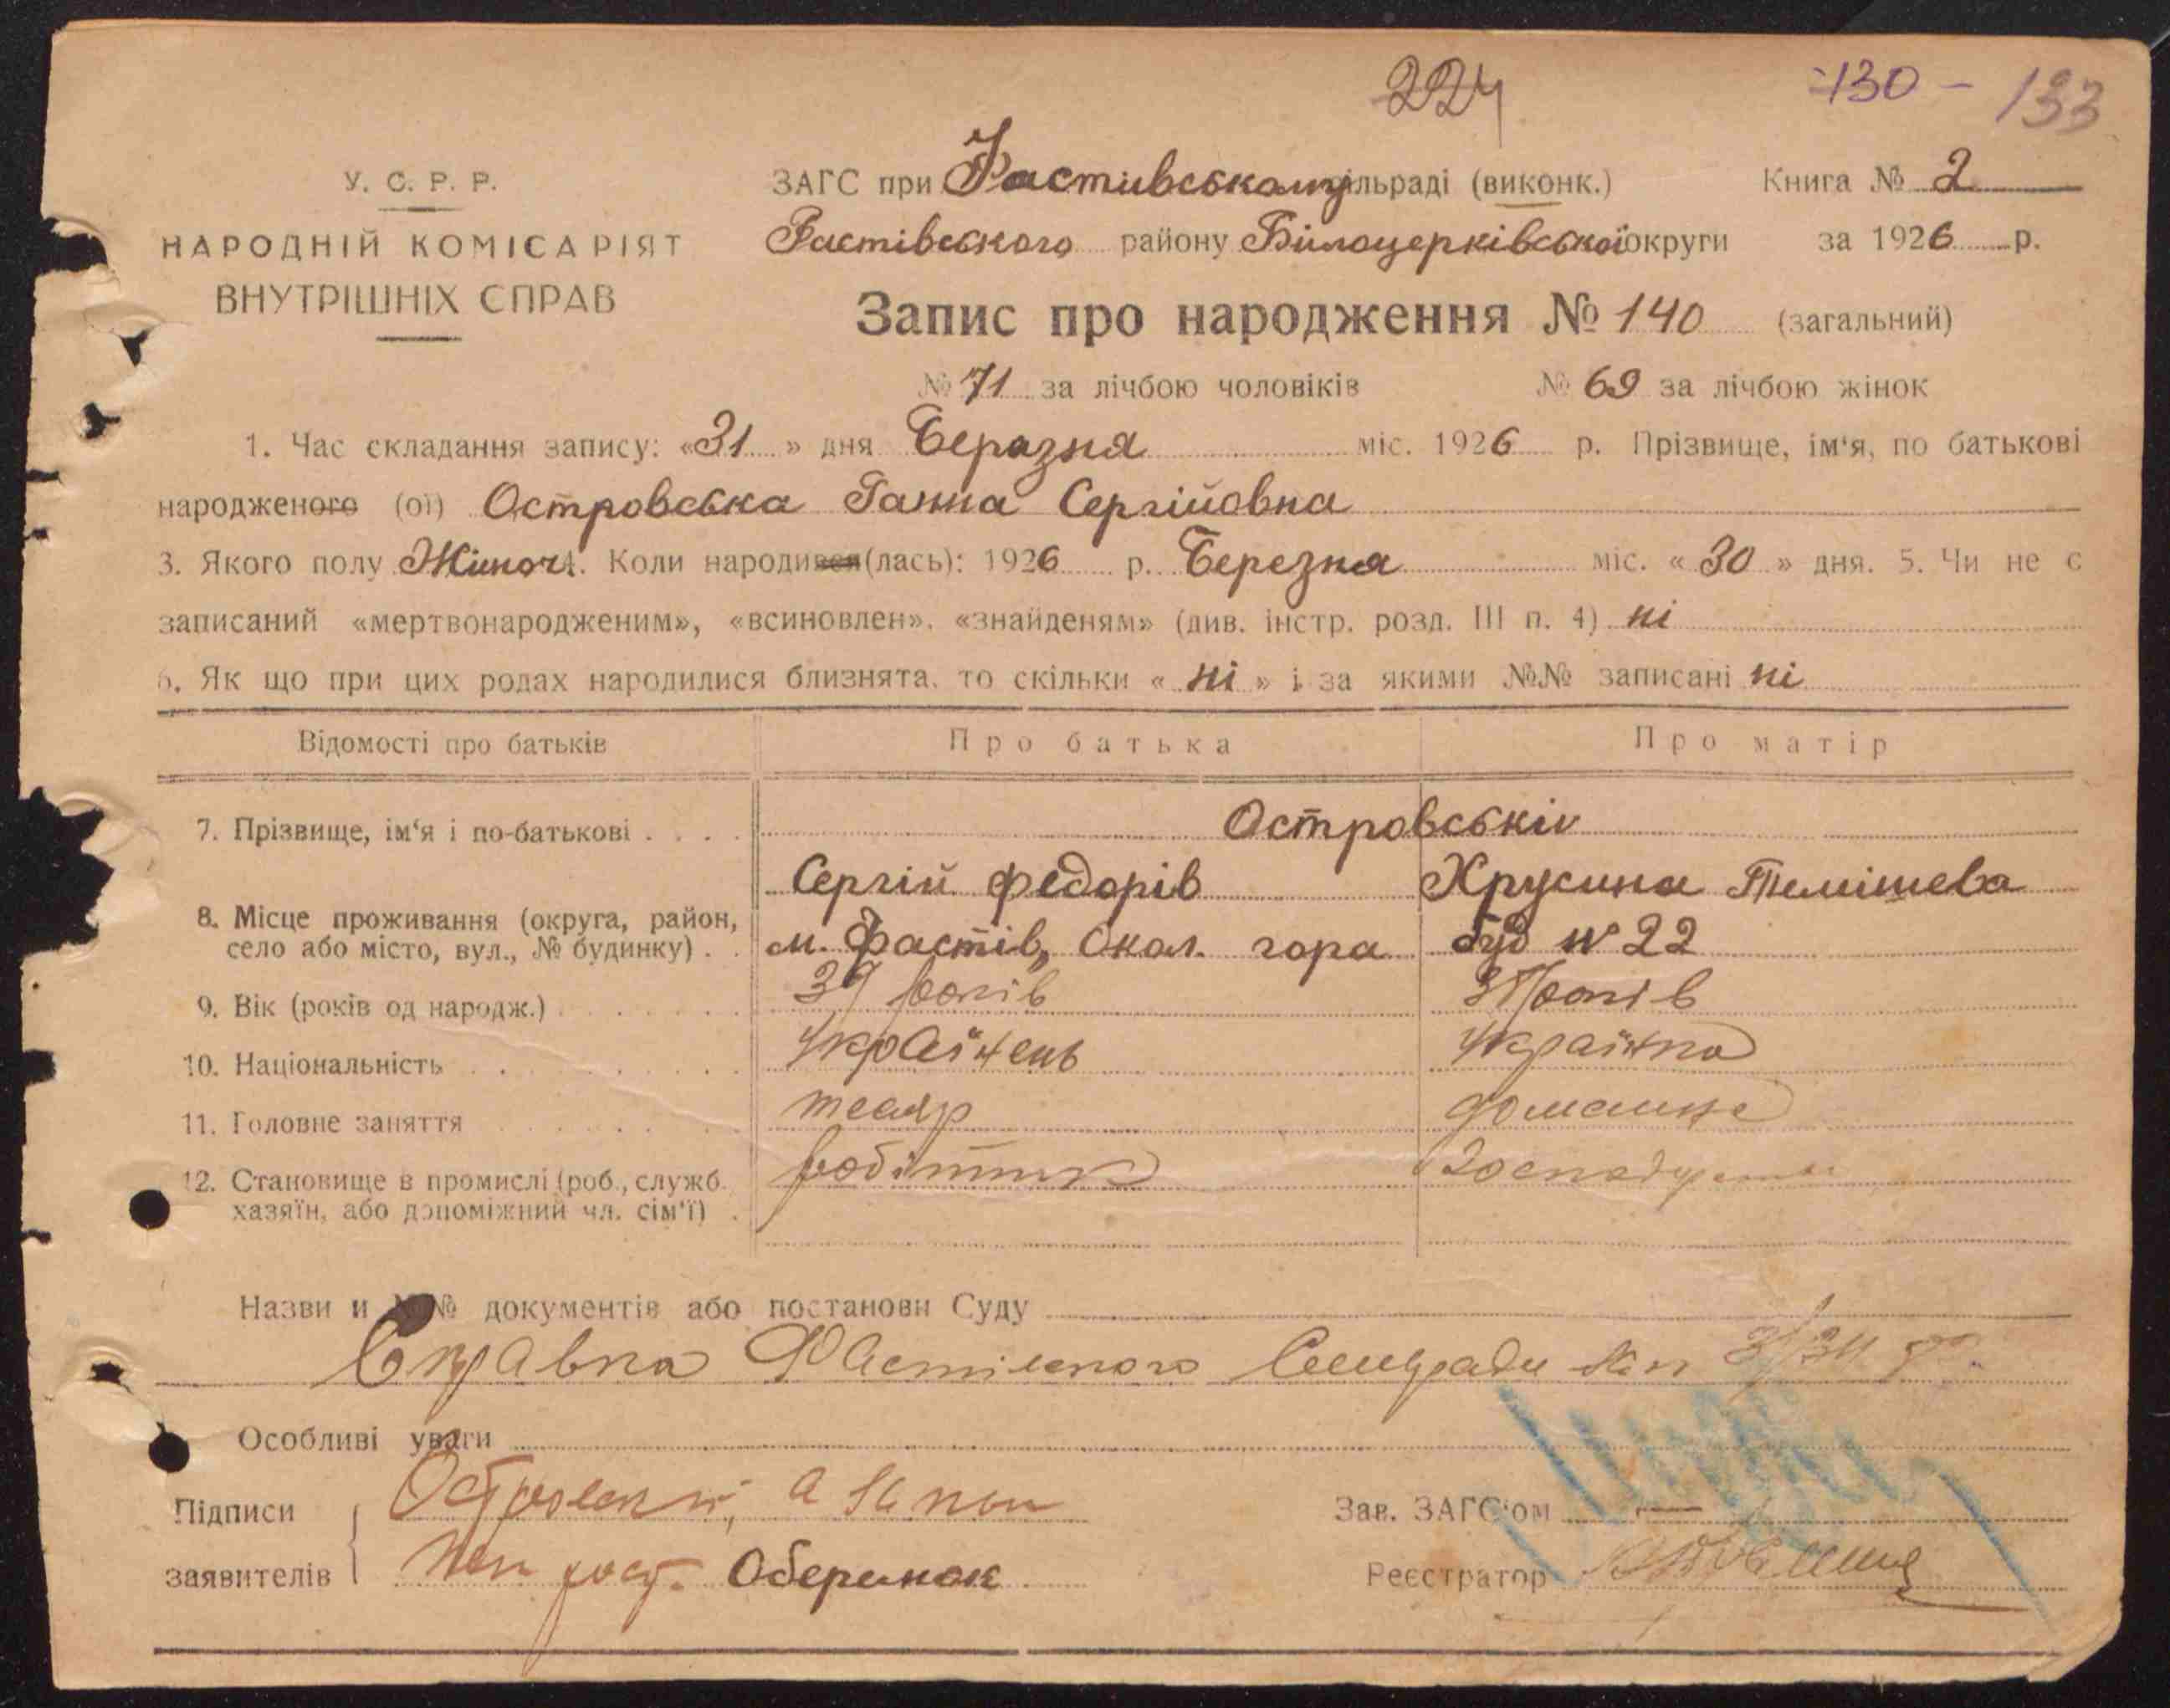 224 130 - 133
У. С. Р. Р.
НАРОДНІЙ КОМІСАРІЯТ
ВНУТРІШНІХ СПРАВ
ЗАГС при Фастивському сільраді (виконк.) Книга № 2
Фастівського району Білоцерківської округи за 1926 р.
Запис про народження № 140 (загальний)
№ 71 за лічбою чоловіків № 69 за лічбою жінок
1. Час складання запису: «31» дня Березня міс. 1926 р. Прізвище, ім'я, по батькові
народженого (ої) Островська Ганна Сергійовна
3. Якого полу Жіноч 4. Коли народився (лась): 1926 р. Березня міс. «30» дня. 5. Чи не є
записаний «мертвонародженим», «всиновлен», «знайденям» (див. інстр. розд. III п. 4) ні
6. Як що при цих родах народилися близнята, то скільки «ні» і за якими №№ записані ні
Відомості про батьків Про батька Про матір
7. Прізвище, ім'я і по-батькові Островськів
Сергій Федорів Хрусина
8. Місце проживання (округа, район,
село або місто, вул., № будинку) м. Фастів, Окол. гора буд № 22
9. Вік (років од народж.) 39 років років
10. Національність Українець Українка
11. Головне заняття тесляр домашнє
12. Становище в промислі (роб., служб.
хазяїн, або допоміжний чл. сім'ї) робітник
Назви и №№ документів або постанови Суду
Справка Фастівського
Особливі уваги
Підписи
заявителів Оберемок
Зав. ЗАГС'ом
Реєстратор